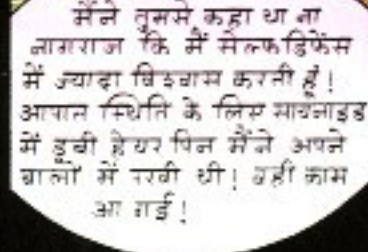 मैंने तुमसे कहा था ना
नागराज कि मैं सेल्फडिफेंस
में ज्यादा विश्वास करती हूँ!
आपात स्थिति के लिए सायनाइड
में डूबी हेयर पिन मैंने अपने
बालों में रखी थी! वही काम
आ गई!